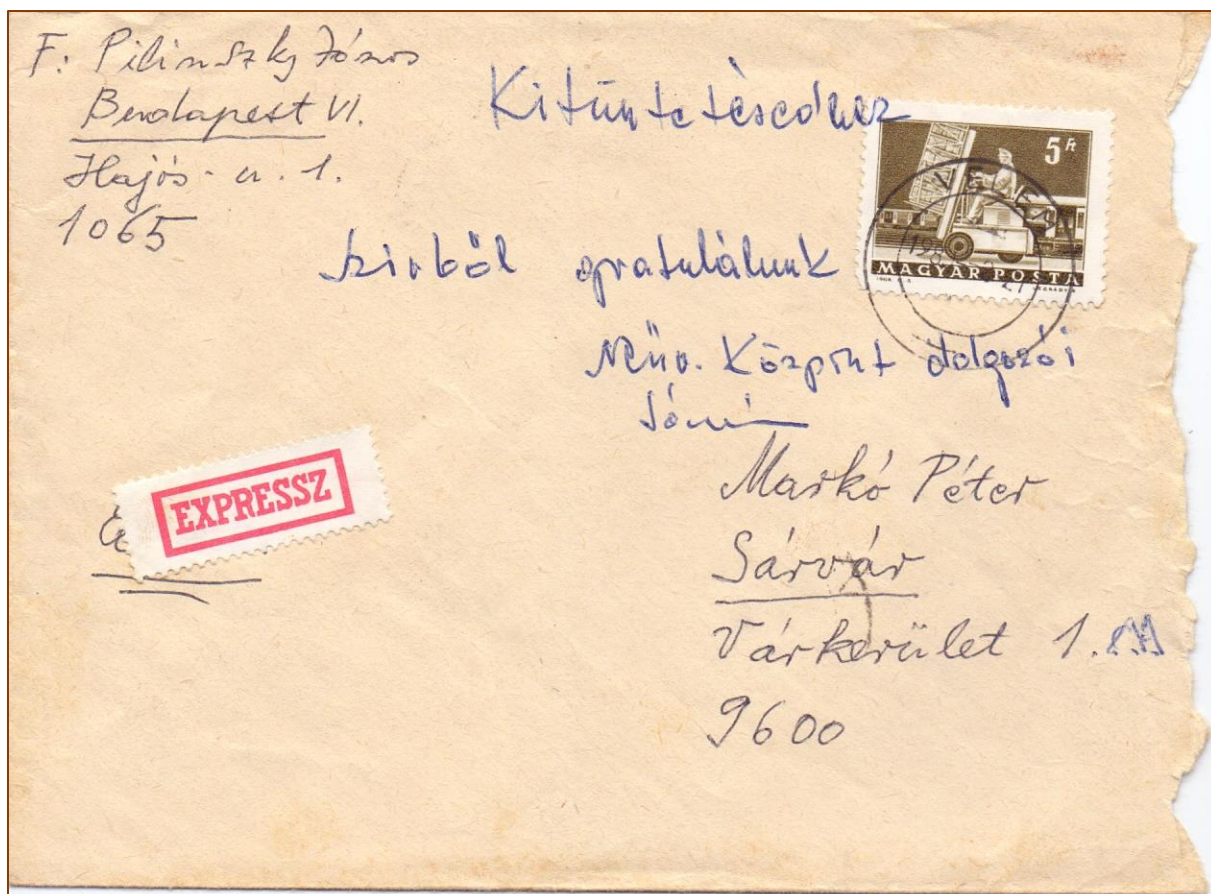 F: Pilinszky János
Budapest VI.
Hajós-u. 1.
1065
Kitüntetésedhez
szivből gratulálunk
Műv. Központ dolgozói
5 Ft
MAGYAR POSTA
EXPRESSZ
Markó Péter
Sárvár
Várkerület 1.
9600